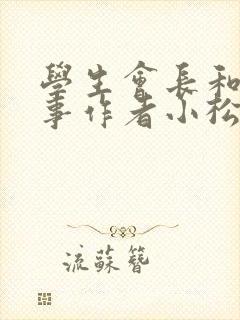 學生會長和
事作者小松
流蘇簪